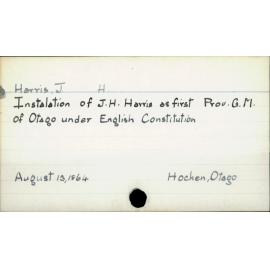 Harris, J. H.
Instalation of J.H. Harris as first Prov. G.M.
of Otago under English Constitution
August 13, 1864
Hocken, Otago